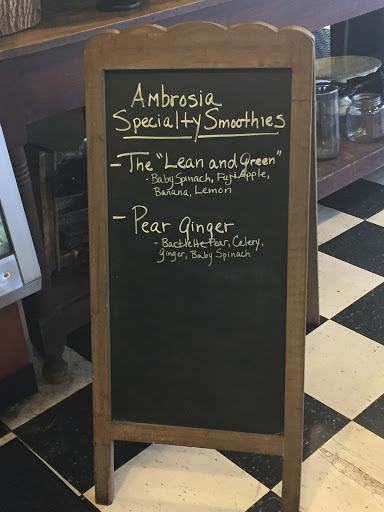 Ambrosia
Specialty Smoothies
- The "Lean and Green"
- Baby Spinach, Fuji Apple,
Banana, Lemon
- Pear Ginger
- Bactlette Pear, Celery,
Ginger, Baby Spinach